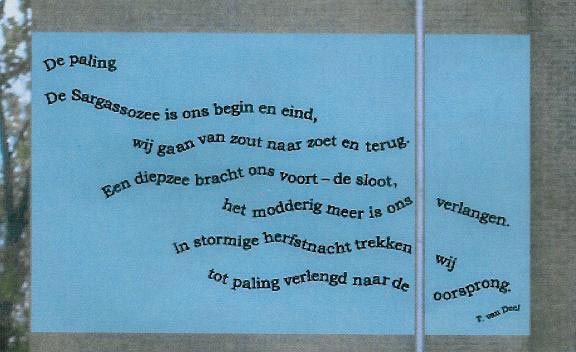 De paling
De Sargassozee is ons begin en eind,
wij gaan van zout naar zoet en terug.
Een diepzee bracht ons voort – de sloot,
het modderig meer is ons verlangen.
In stormige herfstnacht trekken wij
tot paling verlengd naar de oorsprong.
T. van Deel